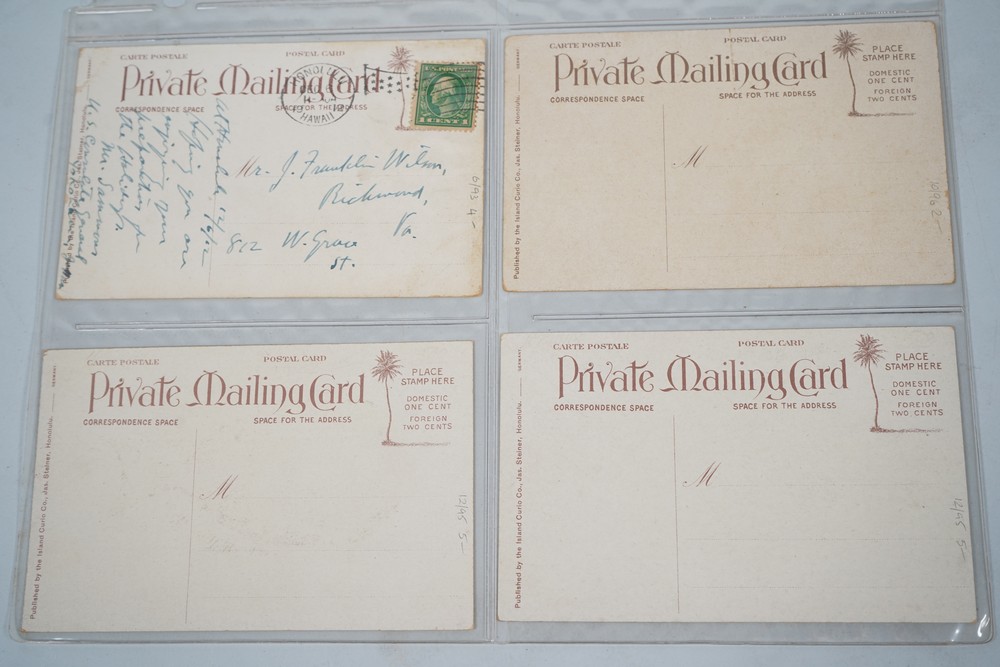 CARTE POSTALE
POSTAL CARD
Private Mailing Card
CORRESPONDENCE SPACE
SPACE FOR THE ADDRESS
HONOLULU
HAWAII
1 CENT 1
Honolulu 12/6/12
hoping you are
enjoying your
preparation for
the holidays.
Mr. Sammons
U.S. Consulate General
Mr. J. Franklin Wilson,
Richmond,
Va.
812 W. Grace
St.
6/93 4-
GERMANY
CARTE POSTALE
POSTAL CARD
Private Mailing Card
CORRESPONDENCE SPACE
SPACE FOR THE ADDRESS
PLACE
STAMP HERE
DOMESTIC
ONE CENT
FOREIGN
TWO CENTS
M
Published by the Island Curio Co., Jas. Steiner, Honolulu.
GERMANY
CARTE POSTALE
POSTAL CARD
Private Mailing Card
CORRESPONDENCE SPACE
SPACE FOR THE ADDRESS
PLACE
STAMP HERE
DOMESTIC
ONE CENT
FOREIGN
TWO CENTS
M
12/95 5-
Published by the Island Curio Co., Jas. Steiner, Honolulu.
GERMANY
CARTE POSTALE
POSTAL CARD
Private Mailing Card
CORRESPONDENCE SPACE
SPACE FOR THE ADDRESS
PLACE
STAMP HERE
DOMESTIC
ONE CENT
FOREIGN
TWO CENTS
M
12/95 5-
Published by the Island Curio Co., Jas. Steiner, Honolulu.
GERMANY